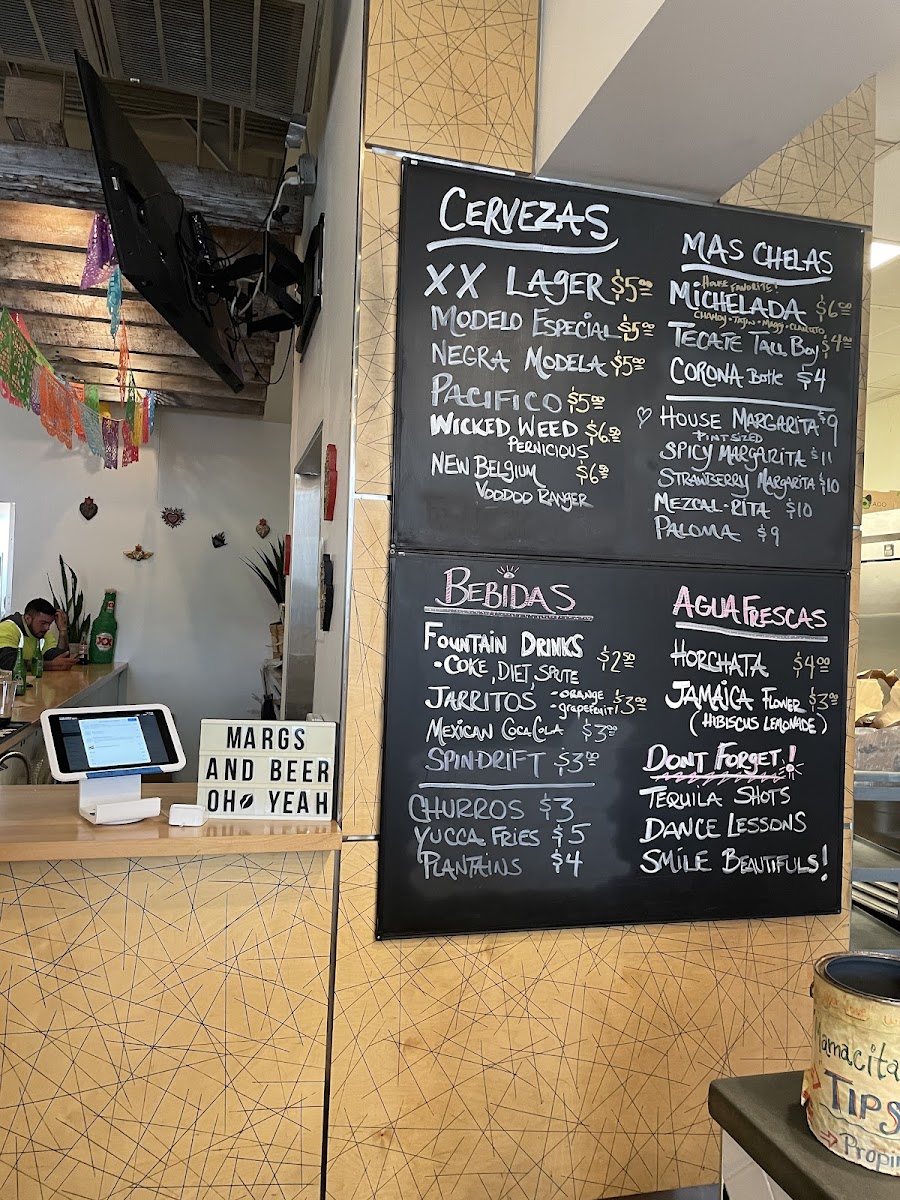 CERVEZAS
XX LAGER $5⁰⁰
MODELO ESPECIAL $5⁰⁰
NEGRA MODELA $5⁰⁰
PACIFICO $5⁰⁰
WICKED WEED $6⁵⁰
PERNICIOUS
NEW BELGIUM $6⁵⁰
VOODOO RANGER
MAS CHELAS
HOUSE FAVORITE!
MICHELADA $6⁰⁰
CHAMOY • TAJIN • MAGGI • CLAMATO
TECATE TALL BOY $4⁰⁰
CORONA Bottle $4
HOUSE MARGARITA $9
PINT SIZED
SPICY MARGARITA $11
STRAWBERRY MARGARITA $10
MEZCAL-RITA $10
PALOMA $9
BEBIDAS
FOUNTAIN DRINKS $2⁵⁰
• COKE, DIET, SPRITE
JARRITOS - orange $3⁰⁰
- grapefruit!
MEXICAN COCA COLA $3⁰⁰
SPINDRIFT $3⁰⁰
CHURROS $3
YUCCA FRIES $5
PLANTAINS $4
AGUA FRESCAS
HORCHATA $4⁰⁰
JAMAICA FLOWER $3⁰⁰
(HIBISCUS LEMONADE)
DONT FORGET!
TEQUILA SHOTS
DANCE LESSONS
SMILE BEAUTIFULS!
MARGS
AND BEER
OH YEAH
XX
Mamacita
TIPS
→ Propin